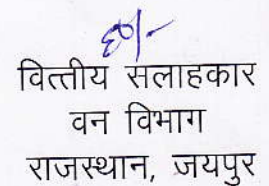 ह०/-
वित्तीय सलाहकार
वन विभाग
राजस्थान, जयपुर